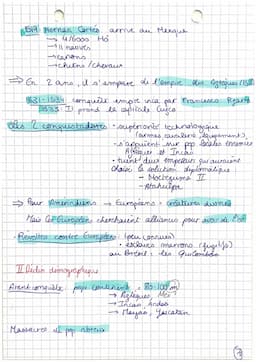 1519 Hernán Cortés arrive au Mexique
→ 4/6000 Ho
→ 11 navires
→ canons
→ chiens/chevaux
⇒ En 2 ans, il s'empare de l'empire des Aztèques
1531-1534 conquête empire inca par Francisco Pizarro
1533: prend la capitale Cuzco
Les 2 conquistadores: - supériorité technologique
(armes, cavaliers, équipements)
- s'appuient sur pop locales ennemies
Aztèques et Incas
- tuent deux empereurs qui auraient
choisi la solution diplomatique
→ Moctezuma II
→ Atahualpa
⇒ Pour Amérindiens → Européens = créatures divines
Mais Européens cherchaient alliances pour avoir de l'or
- Révoltes contre Européens: (peu connues)
• esclaves marrons (fugitifs)
au Brésil: les quilombos
II Déclin démographique
Avant conquête: pop continent = 80-100 m
→ Aztèques,
→ Incas, Andes
→ Mayas, Yucatan
Massacres de pop